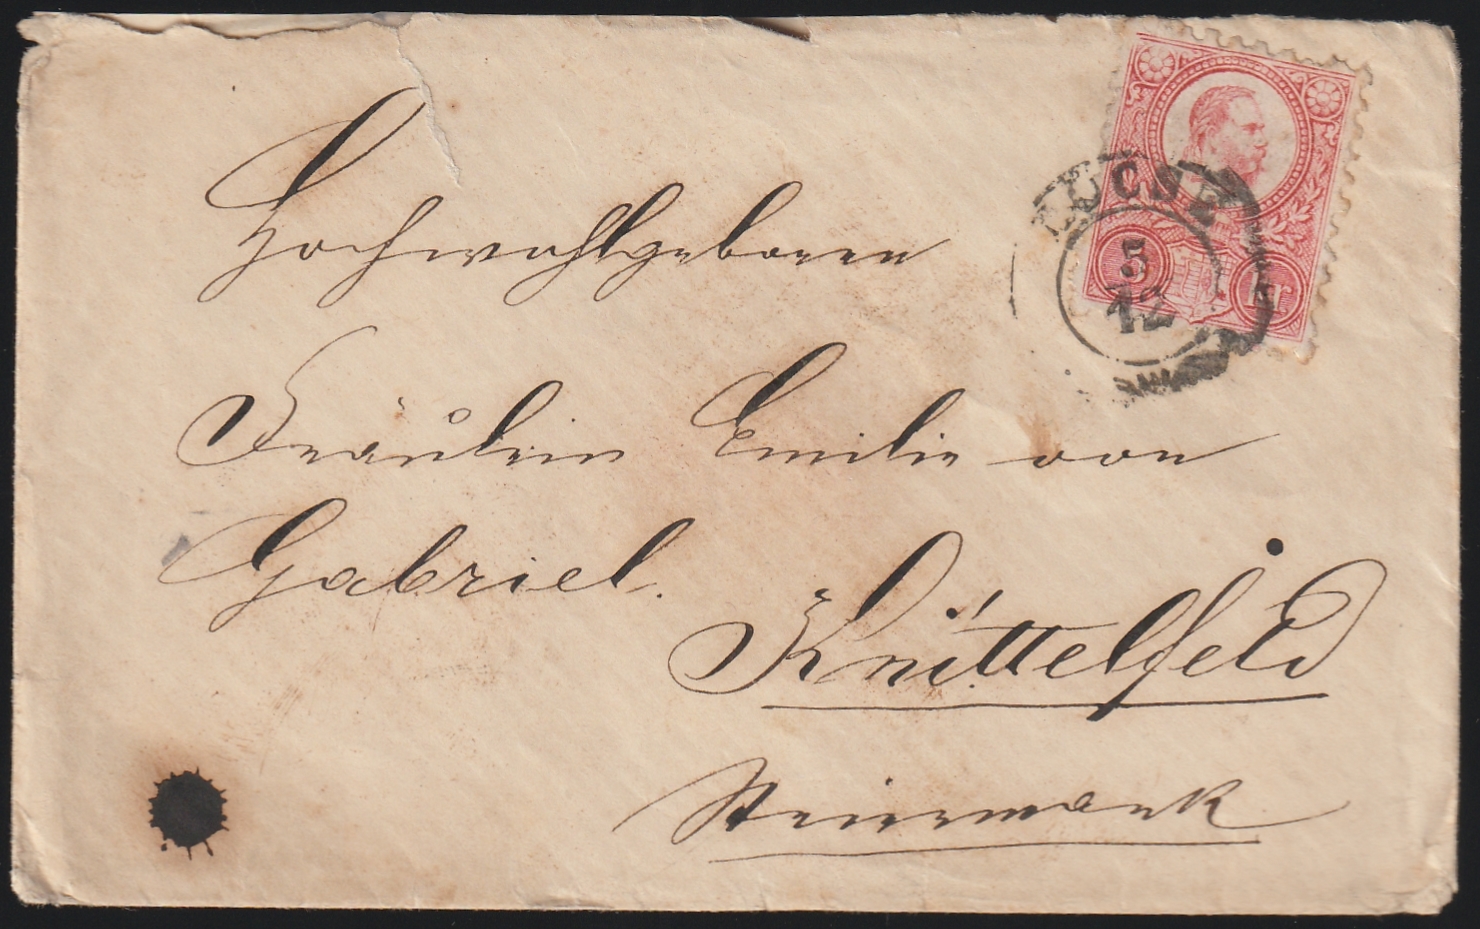 5
12
5 kr
Hochwohlgeboren
Fräulein Emilie von
Gabriel.
Knittelfeld
Steiermark